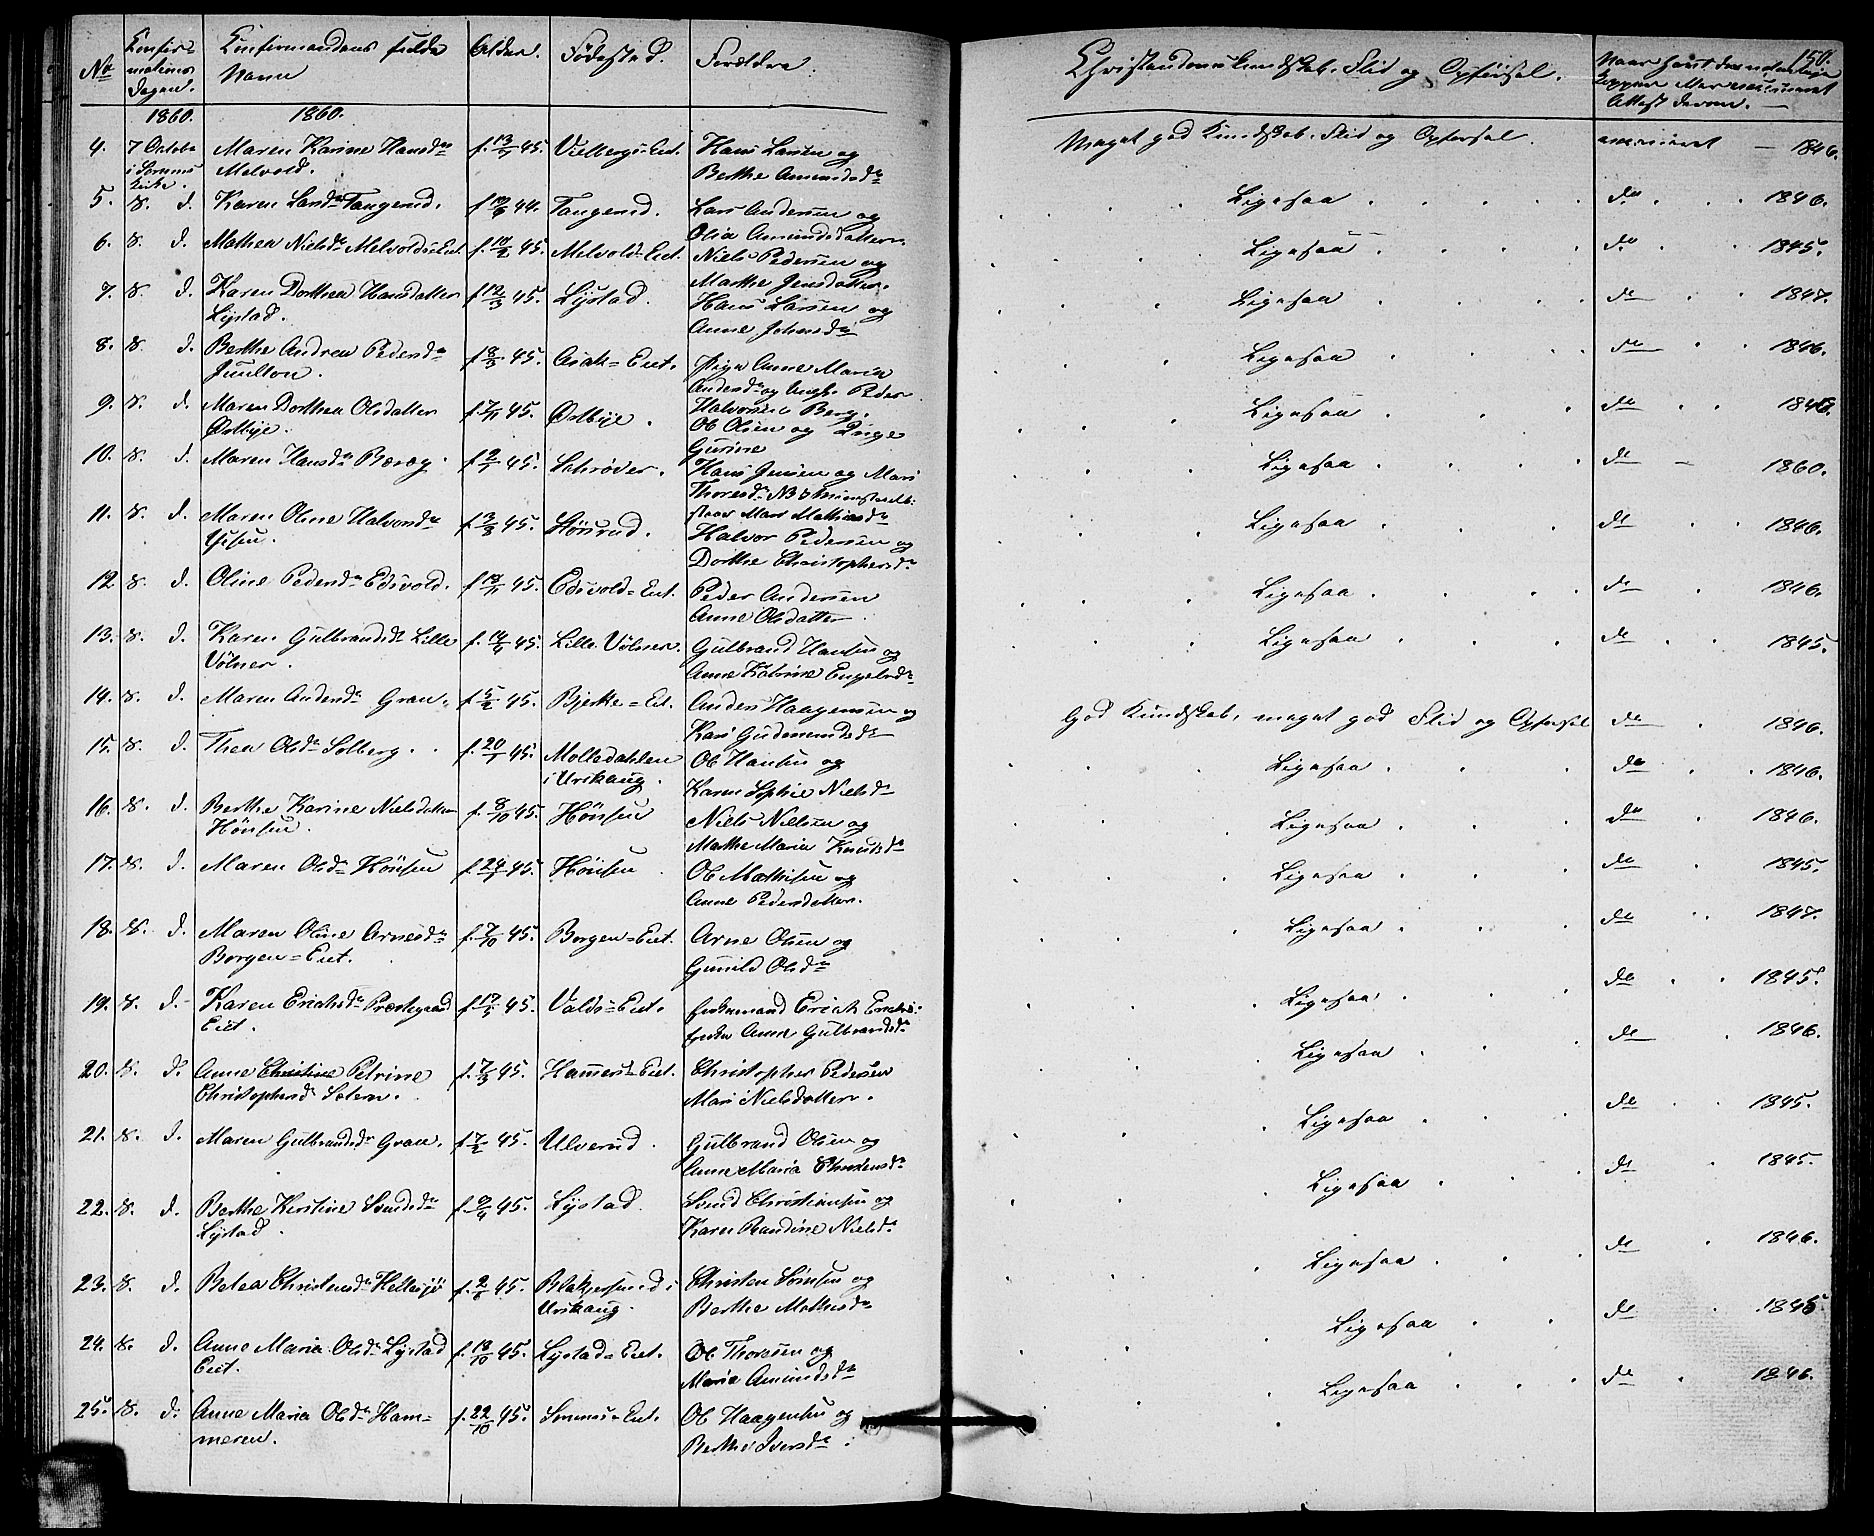 150.
No Confirmations Dagen. Confirmandens fulde Navn Alder. Fødested. Forældre. Christendomskundskab, Flid og Opførsel.
1860. 1860.
4. 7 Octobr Maren Karine Hansdr f. 13/7 45. Vilbergs-Eiet. Hans Larsen og Meget god Kundskab, Flid og Opførsel. vaccineret – 1846.
i Sørums Kirke. Melvold. Berthe Amundsdr
5. d. d. Karen Larsdr Tangerud. 44. Tangerud. Lars Andersen og Ligesaa do 1846.
Olia Amundsdatter.
6. d. d. Mathea Nielsdr Melvolds-Eiet. f. 10/2 45. Melvold-Eiet. Niels Pedersen og Ligesaa do 1845.
Marthe Jensdatter.
7. d. d. Karen Dorthea Hansdatter f. 12/3 45. Lystad. Hans Larsen og Ligesaa do 1847.
Lystad. Anne Johnsdr
8. d. d. Berthe Andrea Pedersdr f. 8/3 45. Asak-Eiet. Pige Anne Maria Ligesaa do 1846.
Andersdr og Ungk. Peder
9. d. d. Maren Dorthea Olsdatter f. 7/11 45. Østbye. Halvorsen Berg. Ligesaa do
Østbye. Ole Olsen og Inge
Gurine
10. d. d. Maren Hansdr Berg. f. 2/1 45. Schrøder. Hans Jensen og Mari Ligesaa do – 1860.
Thoresdr NB
Mari Mathiasdr
11. d. d. Maren Oline Halvorsdr f. 3/3 45. Hønsrud. Halvor Pedersen og Ligesaa do 1846.
Dorthe Christophersdr
12. d. d. Oline Pedersdr Edsvold. 45. Edsvold-Eiet. Peder Andersen Ligesaa do 1846.
Anne Olsdatter
13. d. d. Karen Gulbrandsdr Lille 45. Lille Vølner. Gulbrand Hansen og Ligesaa do 1845.
Vølner. Anne Katrine Engelsdr
14. d. d. Maren Andersdr Gran. f. 5/2 45. Bjerke-Eiet. Anders Haagensen og God Kundskab, meget god Flid og Opførsel do 1846.
Kari Gudmundsdr
15. d. d. Thea Olsdr Solberg. f. 20/1 45. Molledahlen Ole Hansen og Ligesaa do 1846.
i Urskaug. Karen Sophie Nielsdr
16. d. d. Berthe Karine Nielsdatter f. 8/10 45. Hønsen Niels Nielsen og Ligesaa do 1846.
Hønsen. Marthe Maria Knudsdr
17. d. d. Maren Olsdr Hønsen 45. Hønsen Ole Mathisen og Ligesaa do 1845.
Anne Pedersdatter.
18. d. d. Maren Oline Arnesdr f. 7/10 45. Borgen-Eiet. Arne Olsen og Ligesaa do 1847.
Borgen-Eiet. Gunild Olsdr
19. d. d. Karen Erichsdr Præstegaard 45. Valds-Eiet. Enkemand Erich Ligesaa do 1845.
Eiet. Anne Gulbrandsdr
20. d. d. Anne Christine Petrine f. 7/3 45. Hammers-Eiet. Christopher Pedersen Ligesaa do 1846.
Christophersdr Mari Nielsdatter.
21. d. d. Maren Gulbrandsdr Gran. f. 7/2 45. Ulverud. Gulbrand Olsen og Ligesaa do 1845.
Anne Maria Christensdr
22. d. d. Berthe Kerstine Svendsdr 45. Lystad. Svend Christiansen og Ligesaa do 1845.
Lystad. Karen Randine Nielsdr
23. d. d. Betea Christensdr Hellesjø 45. i Christen Ligesaa do 1846.
Urskaug. Berthe Mathisdr
24. d. d. Anne Maria Olsdr Lystad 45. Lystad-Eiet. Ole Thoresen og Ligesaa do
Eiet. Maria Amundsdr
25. d. d. Anne Maria Olsdr Ham= f. 22/10 45. Ole Haagensen og Ligesaa do 1846.
meren. Berthe Iversdr